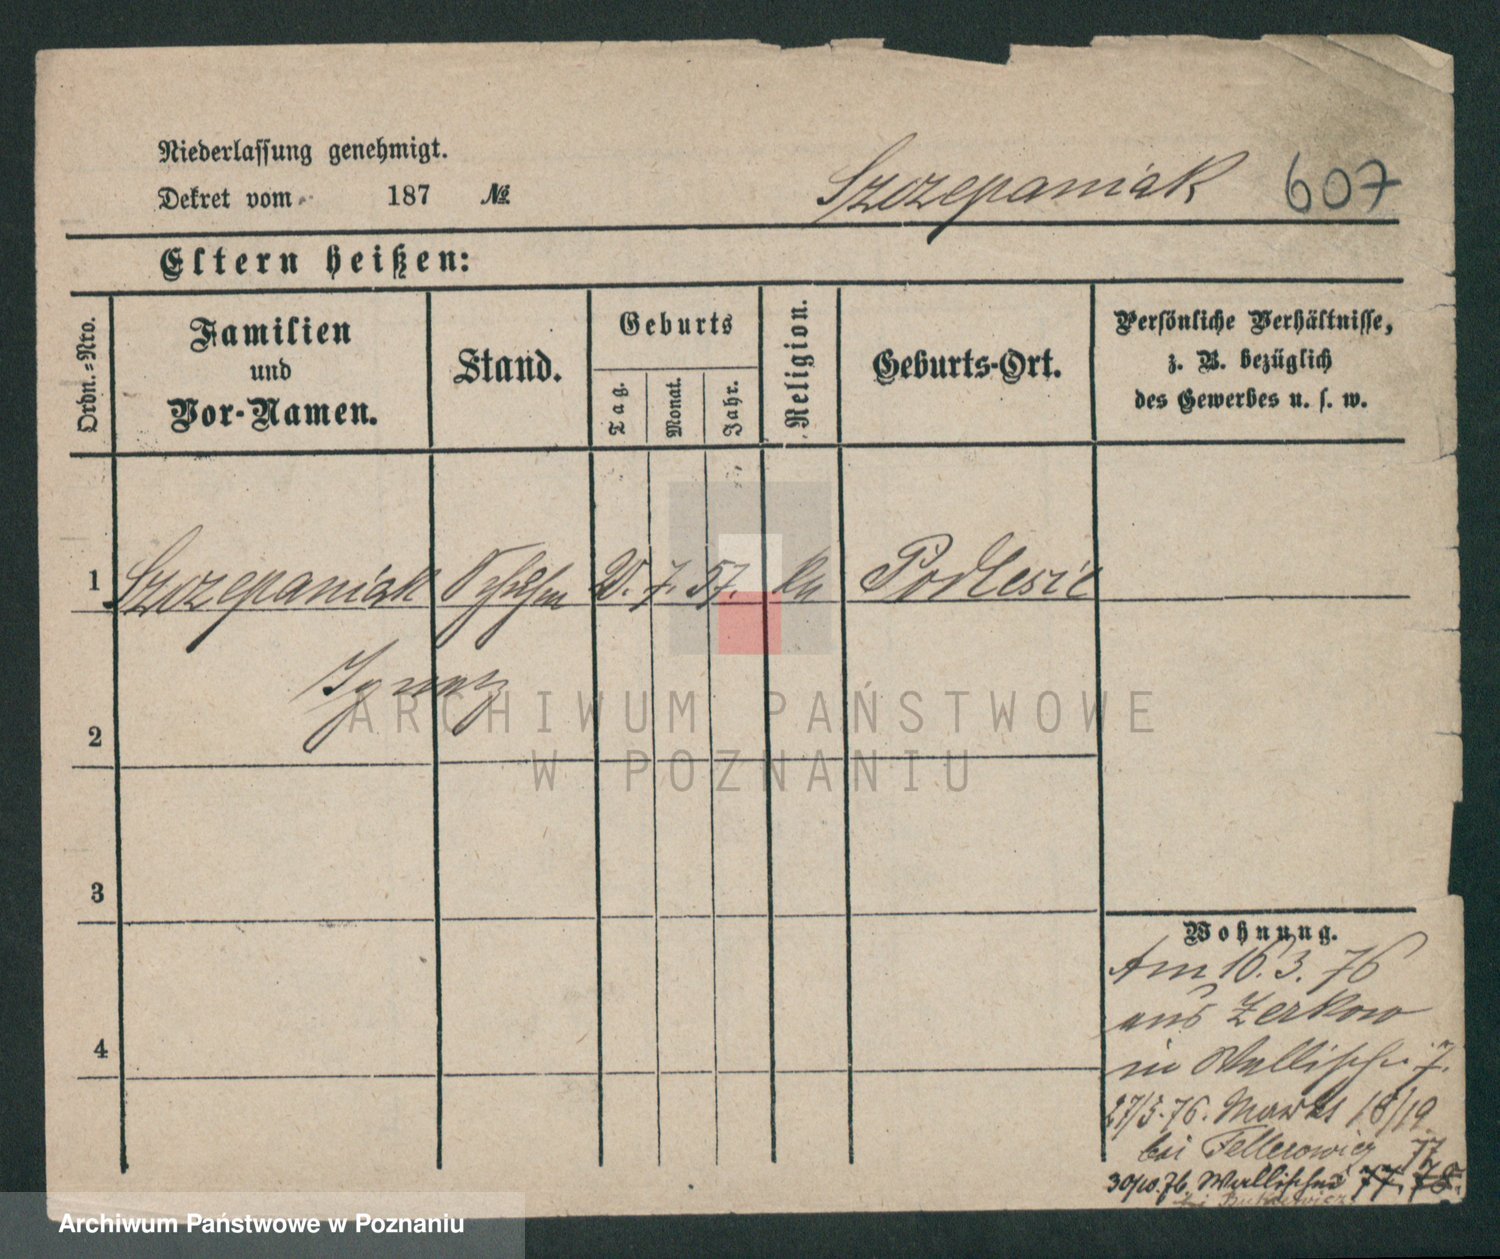 Niederlassung genehmigt.
Dekret vom 187 №
Szczepaniak 607
Eltern heißen:
Ordn.=Nro.
Familien
und
Vor-Namen.
Stand.
Geburts
Tag.
Monat.
Jahr.
Religion.
Geburts-Ort.
Persönliche Verhältnisse,
z. B. bezüglich
des Gewerbes u. s. w.
1 Szczepaniak 7. 57. Podlesie
Ignatz
2
3
4
Wohnung.
Am 16. 3. 76
aus Zerkow
in Wallischei 7.
27/5. 76. Markt 18/19
bei
30/10. 76. Wallischei 77.
ARCHIWUM PAŃSTWOWE
W POZNANIU
Archiwum Państwowe w Poznaniu